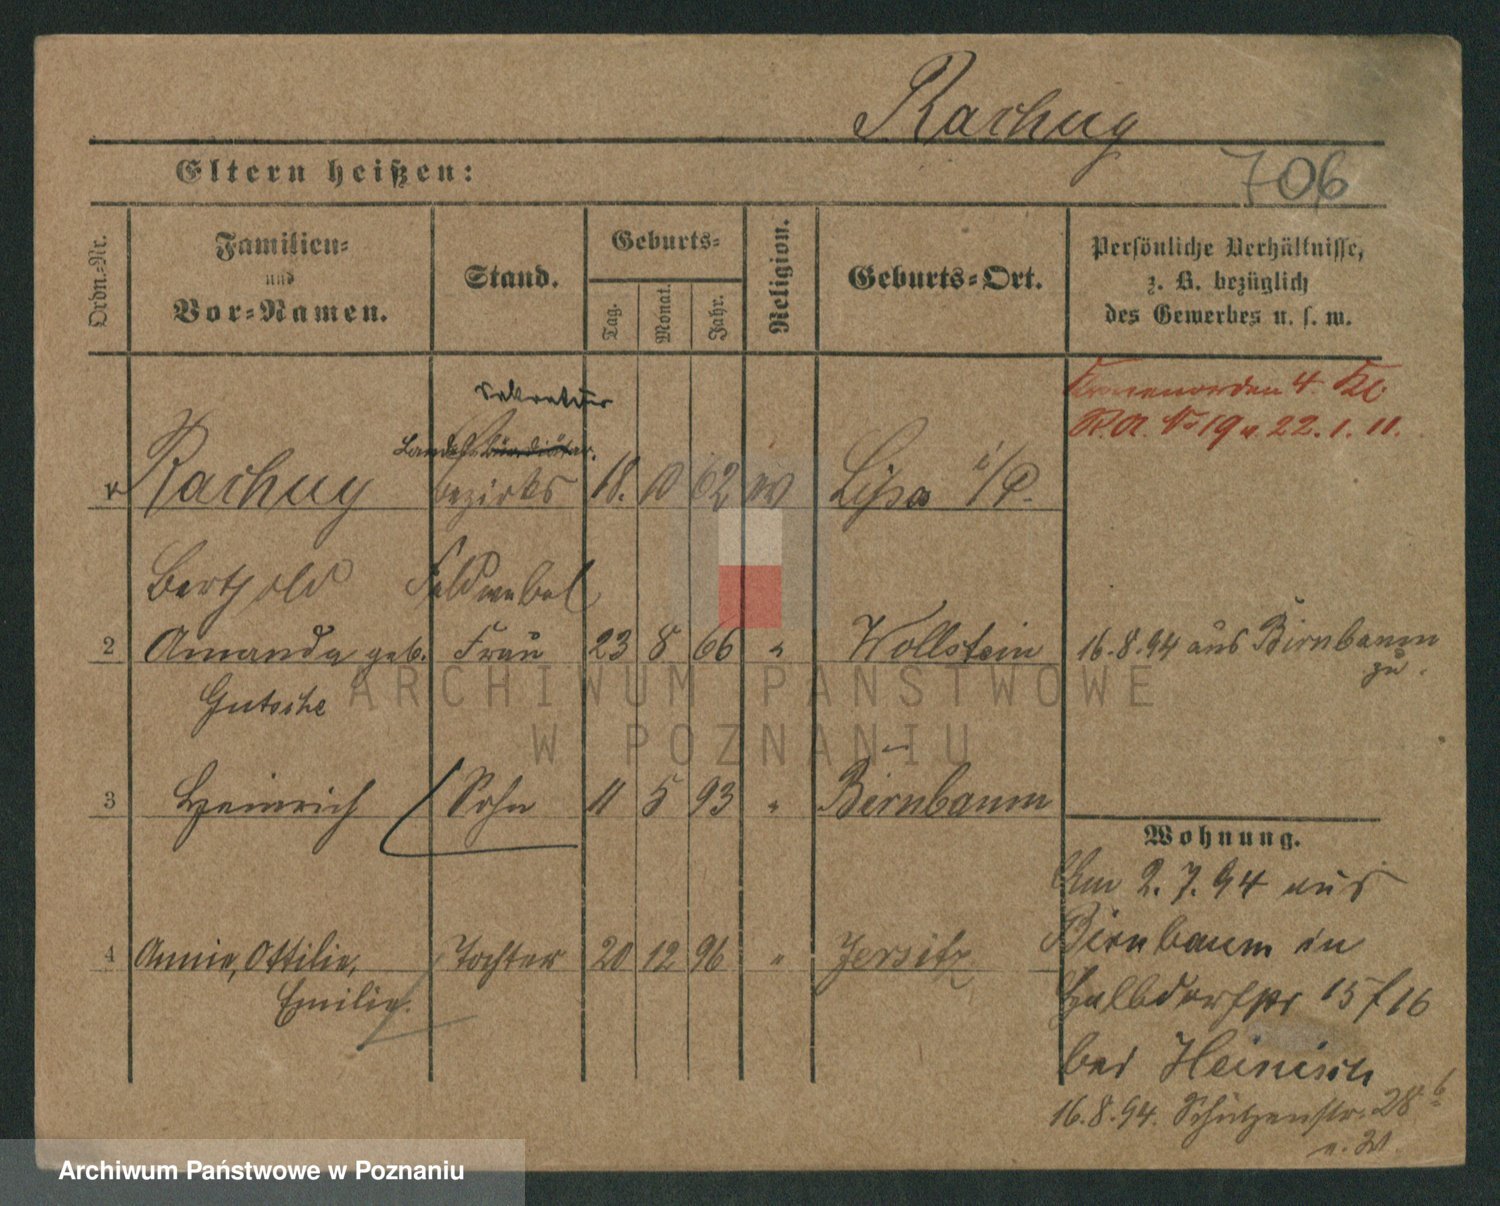 Rachuy
Eltern heißen:
706
Ordn.-Nr.
Familien-
und
Vor-Namen.
Stand.
Geburts-
Tag.
Monat.
Jahr.
Religion.
Geburts-Ort.
Persönliche Verhältnisse,
z. B. bezüglich
des Gewerbes u. s. w.
Kronenorden 4. Kl.
R.A. No 19 v. 22.1.11.
Sekretär
Rachuy Bezirks 18. 10 62 ev Lissa i/P.
Berthold Feldwebel
2 Amanda geb. Frau 23 8 66 " Wollstein 16.8.94 aus Birnbaum
zu.
Gutsche
3 Heinrich Sohn 11 5 93 " Birnbaum
Wohnung.
Am 2.7.94 aus
Birnbaum in
4 Annie, Ottilie, Tochter 20 12 96 " Jersitz
Emilie.
Halbdorfstr 15/16
bei Heinisch
16.8.94. Schützenstr. 28b
ARCHIWUM PAŃSTWOWE
W POZNANIU
Archiwum Państwowe w Poznaniu